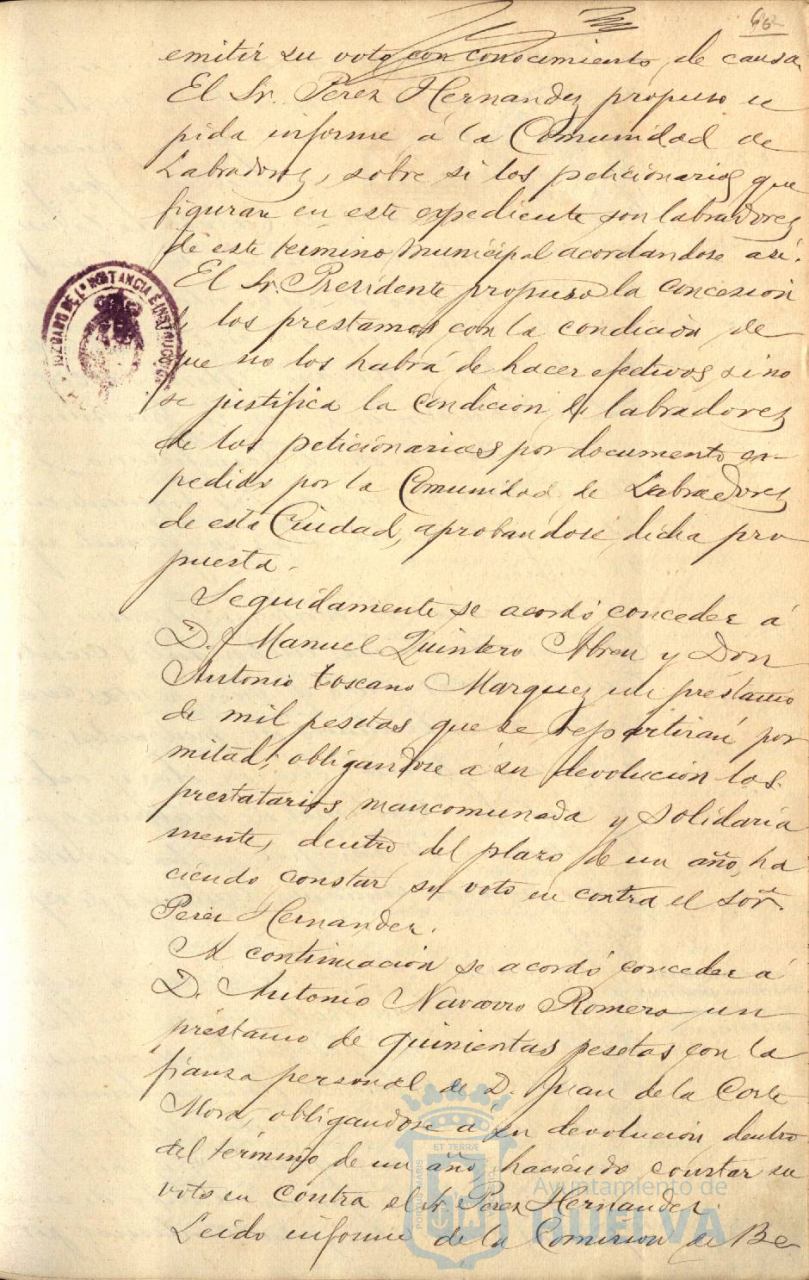 62
emitir su voto con conocimiento de causa.
El Sr. Perez Hernandez propuso se
pida informe á la Comunidad de
Labradores, sobre si los peticionarios que
figuran en este expediente son labradores
de este término municipal acordandose asi.
El Sr. Presidente propuso la concesión
de los préstamos con la condición de
que no los habrá de hacer efectivos si no
se justifica la condicion de labradores
de los peticionarios por documento ex-
pedido por la Comunidad de Labradores
de esta Ciudad, aprobándose dicha pro
puesta.
Seguidamente se acordó conceder á
D. Manuel Quintero Abreu y Don
Antonio Toscano Marquez un préstamo
de mil pesetas que se repartirán por
mitad, obligandose á su devolución los
prestatarios, mancomunada y solidaria
mente, dentro del plazo de un año, ha
ciendo constar su voto en contra el Sor.
Perez Hernandez.
A continuación se acordó conceder á
D. Antonio Navarro Romero un
préstamo de quinientas pesetas con la
fianza personal de D. Juan de la Corte
Mora, obligandose á su devolución dentro
del término de un año, haciendo constar su
voto en contra el Sr. Perez Hernandez.
Leido informe de la Comision de Be
JUZGADO DE 1ª INSTANCIA E INSTRUCCIO
PORTUS MARIS ET TERRÆ
Ayuntamiento de
HUELVA